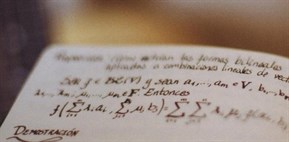 Proposición (Cómo actúan las formas bilineales
aplicadas a combinaciones lineales de vect
Sea f ∈ Bil(V) y sean a₁, ..., aₘ ∈ V, b₁, ..., bₙ
λ₁, ..., λₘ, μ₁, ..., μₙ ∈ F. Entonces
f(∑ λᵢ aᵢ, ∑ μⱼ bⱼ) = ∑ ∑ λᵢ μⱼ f(aᵢ, b
DEMOSTRACIÓN